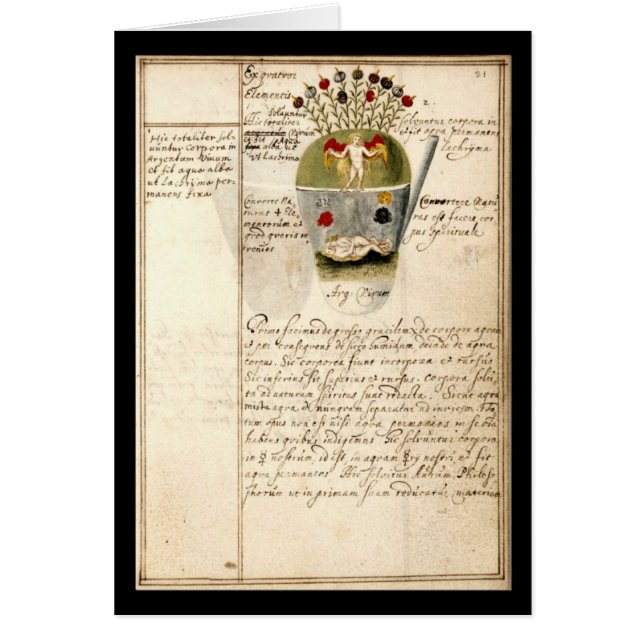 Ex quatuor
Elementis
21
2.
Hic totaliter sol
vuntur Corpora in
Argentum Vivum
et fit aqua alba
ut Lachryma per-
manens fixa
Solvuntur
Hic totaliter
argentum Vivum
et fit Aqua
alba ut
Lachrima
Solvuntur corpora in
et fit aqva permanens
Lachryma
Converte Na
turas 4 Ele-
mentorum et
quod queris in-
venies
Convertere Natu
ras est facere cor
pus Spirituale
Arg: Vivum
Primo facimus de grosso gracilem & de corpore aqvam
et per consequens de sicco humidum deinde de aqva
corpus. Sic corporea fiunt incorporea et rursus
Sic inferius sic superius et rursus. Corpora solu
ta ad naturam spiritus sunt redacta. Sicut aqva
mista aqvæ, et nunquam separatur ad invicem. To
tum opus non est nisi aqva permanens in se oia
habens quibus indigemus hic solvuntur corpora
in ☿ nostrum, id est, in aqvam ☿ry nostri et fit
aqva permanens. Hic solvitur Aurum Philoso
phorum ut in primam suam reducatur materiam